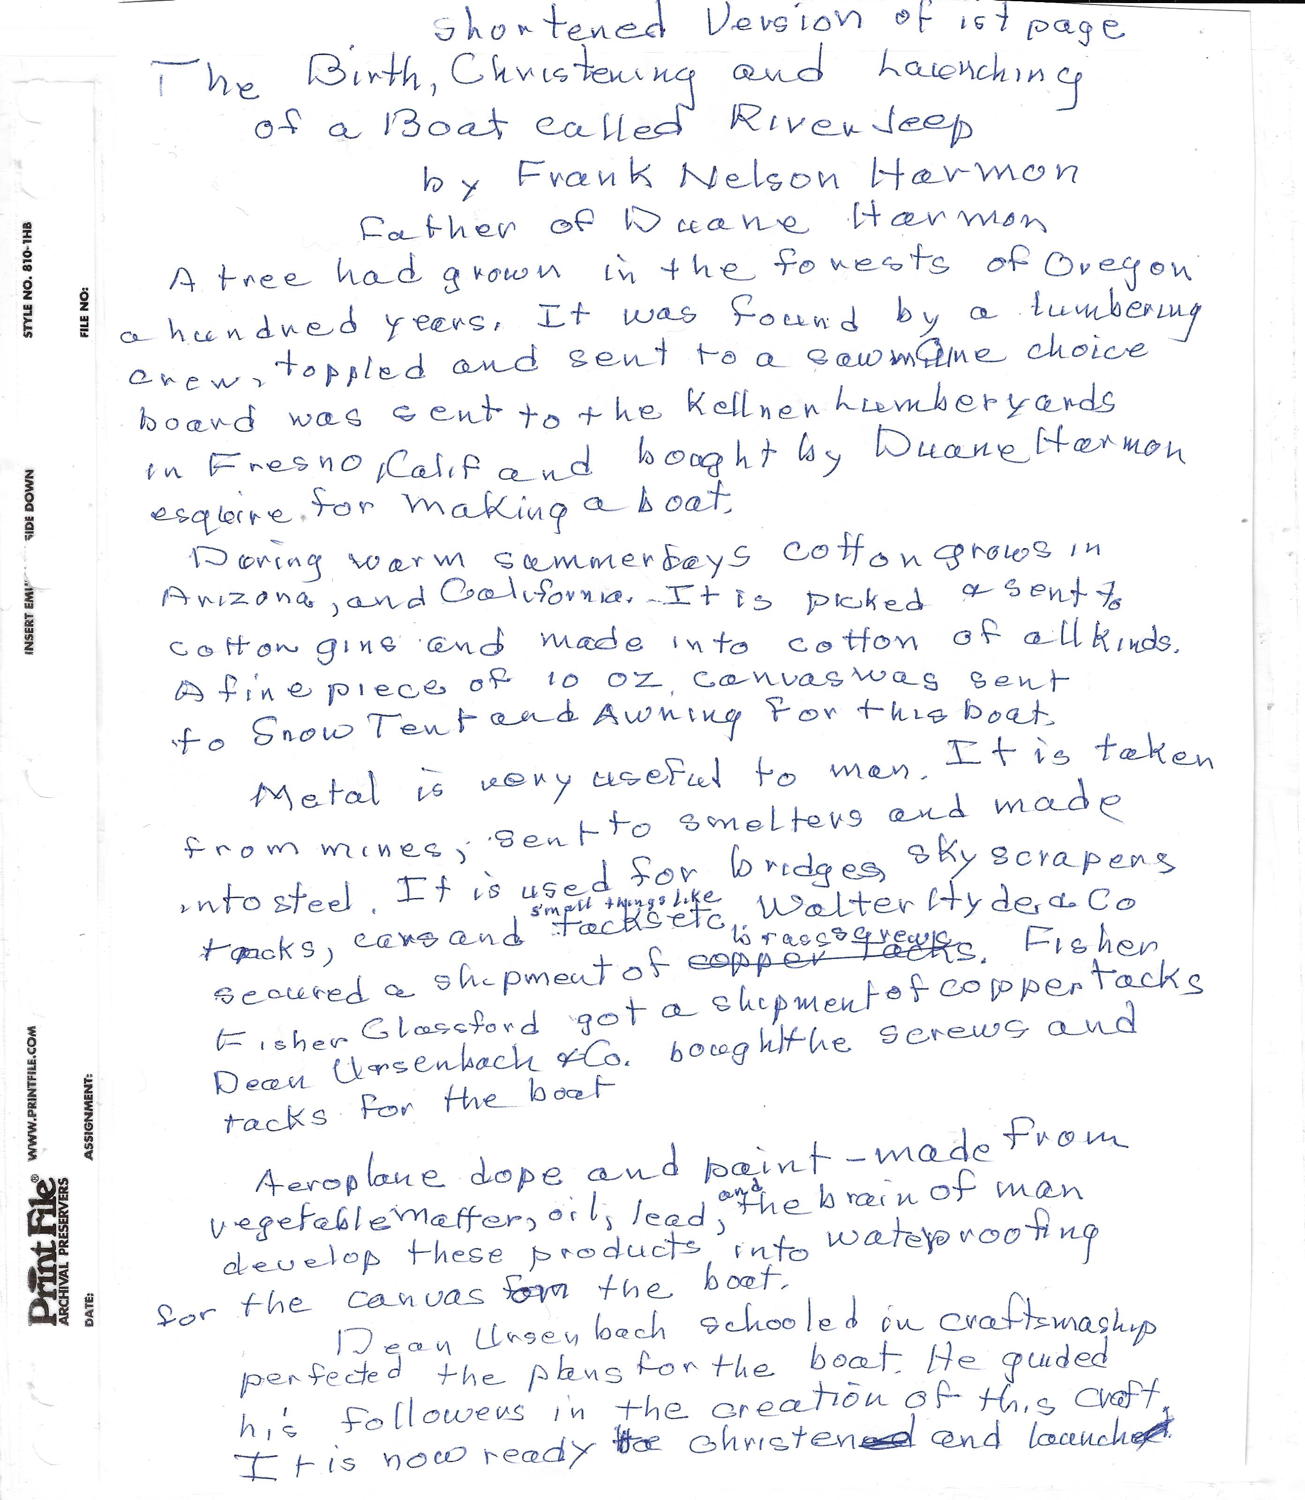 Shortened Version of 1st page
The Birth, Christening and Launching
of a Boat called River Jeep
by Frank Nelson Harmon
Father of Duane Harmon
A tree had grown in the forests of Oregon
a hundred years. It was found by a lumbering
crew, toppled and sent to a sawm One choice
board was sent to the Kellner Lumberyards
in Fresno, Calif and bought by Duane Harmon
esquire. for making a boat.
During warm summer days cotton grows in
Arizona, and California. It is picked & sent to
cotton gins and made into cotton of all kinds.
A fine piece of 10 oz. canvas was sent
to Snow Tent and Awning for this boat.
Metal is very useful to man. It is taken
from mines, sent to smelters and made
into steel. It is used for bridges, skyscrapers
small things like
tracks, cars and tacks etc. Walter Hyde & Co
brass screws
secured a shipment of copper tacks. Fisher
Fisher Glassford got a shipment of copper tacks
Dean Ursenbach & Co. bought the screws and
tacks for the boat
Aeroplane dope and paint - made from
and
vegetable matter, oil, lead, the brain of man
develop these products into waterproofing
for the canvas for the boat.
Dean Ursenbach schooled in craftsmaship
perfected the plans for the boat. He guided
his followers in the creation of this craft.
It is now ready to christened and launched
STYLE NO. 810-1HB
FILE NO:
INSERT EMU SIDE DOWN
WWW.PRINTFILE.COM
ASSIGNMENT:
Print File®
ARCHIVAL PRESERVERS
DATE: